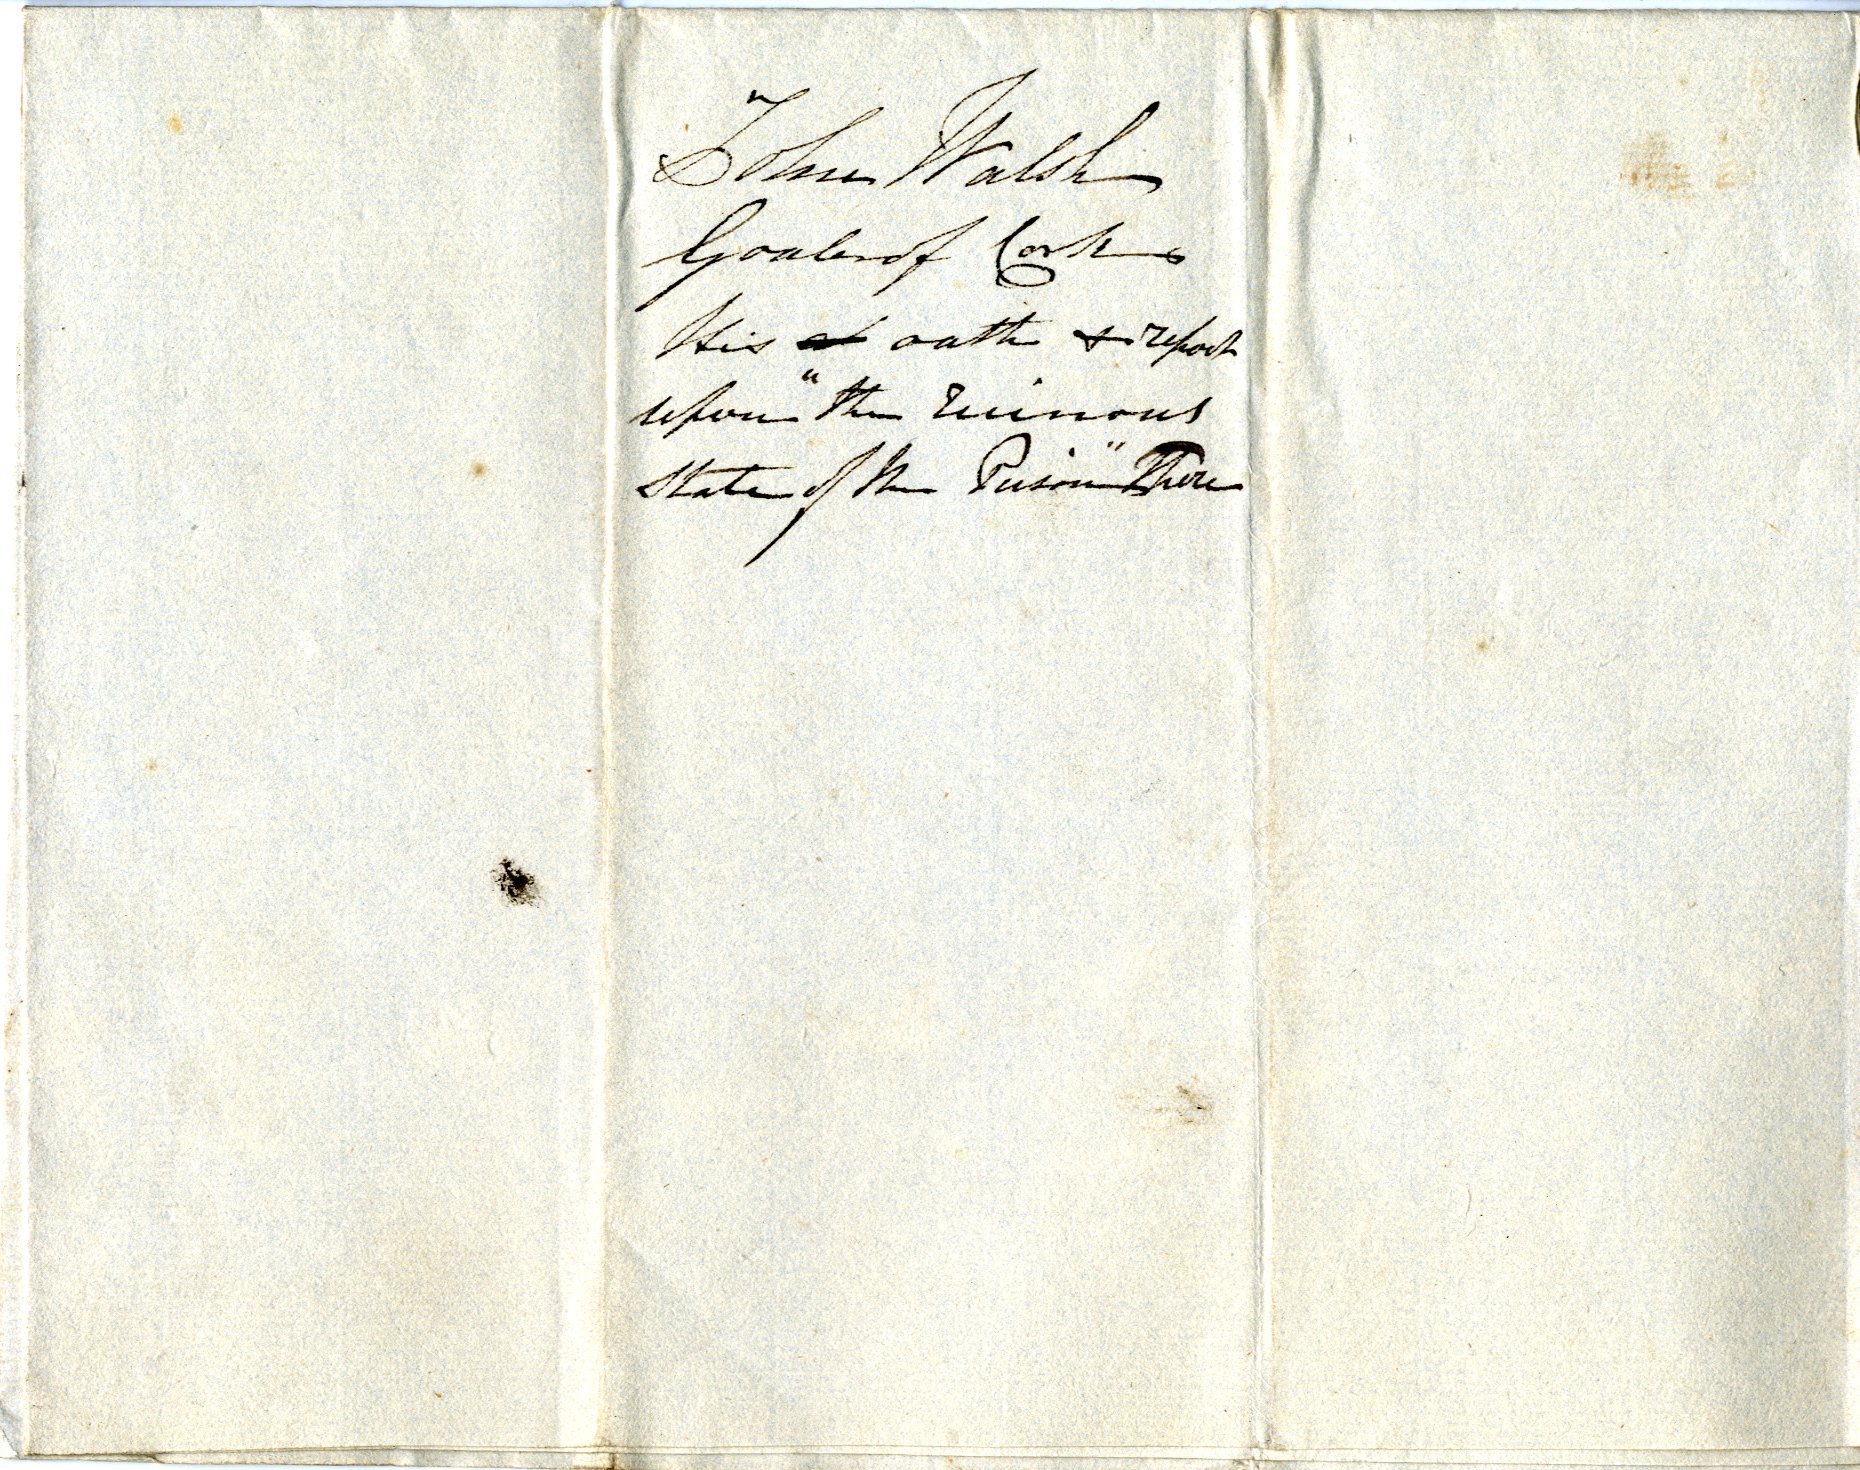 John Walsh
Goaler of Cork
His oath & report
upon "the ruinous
state of the Prison" There